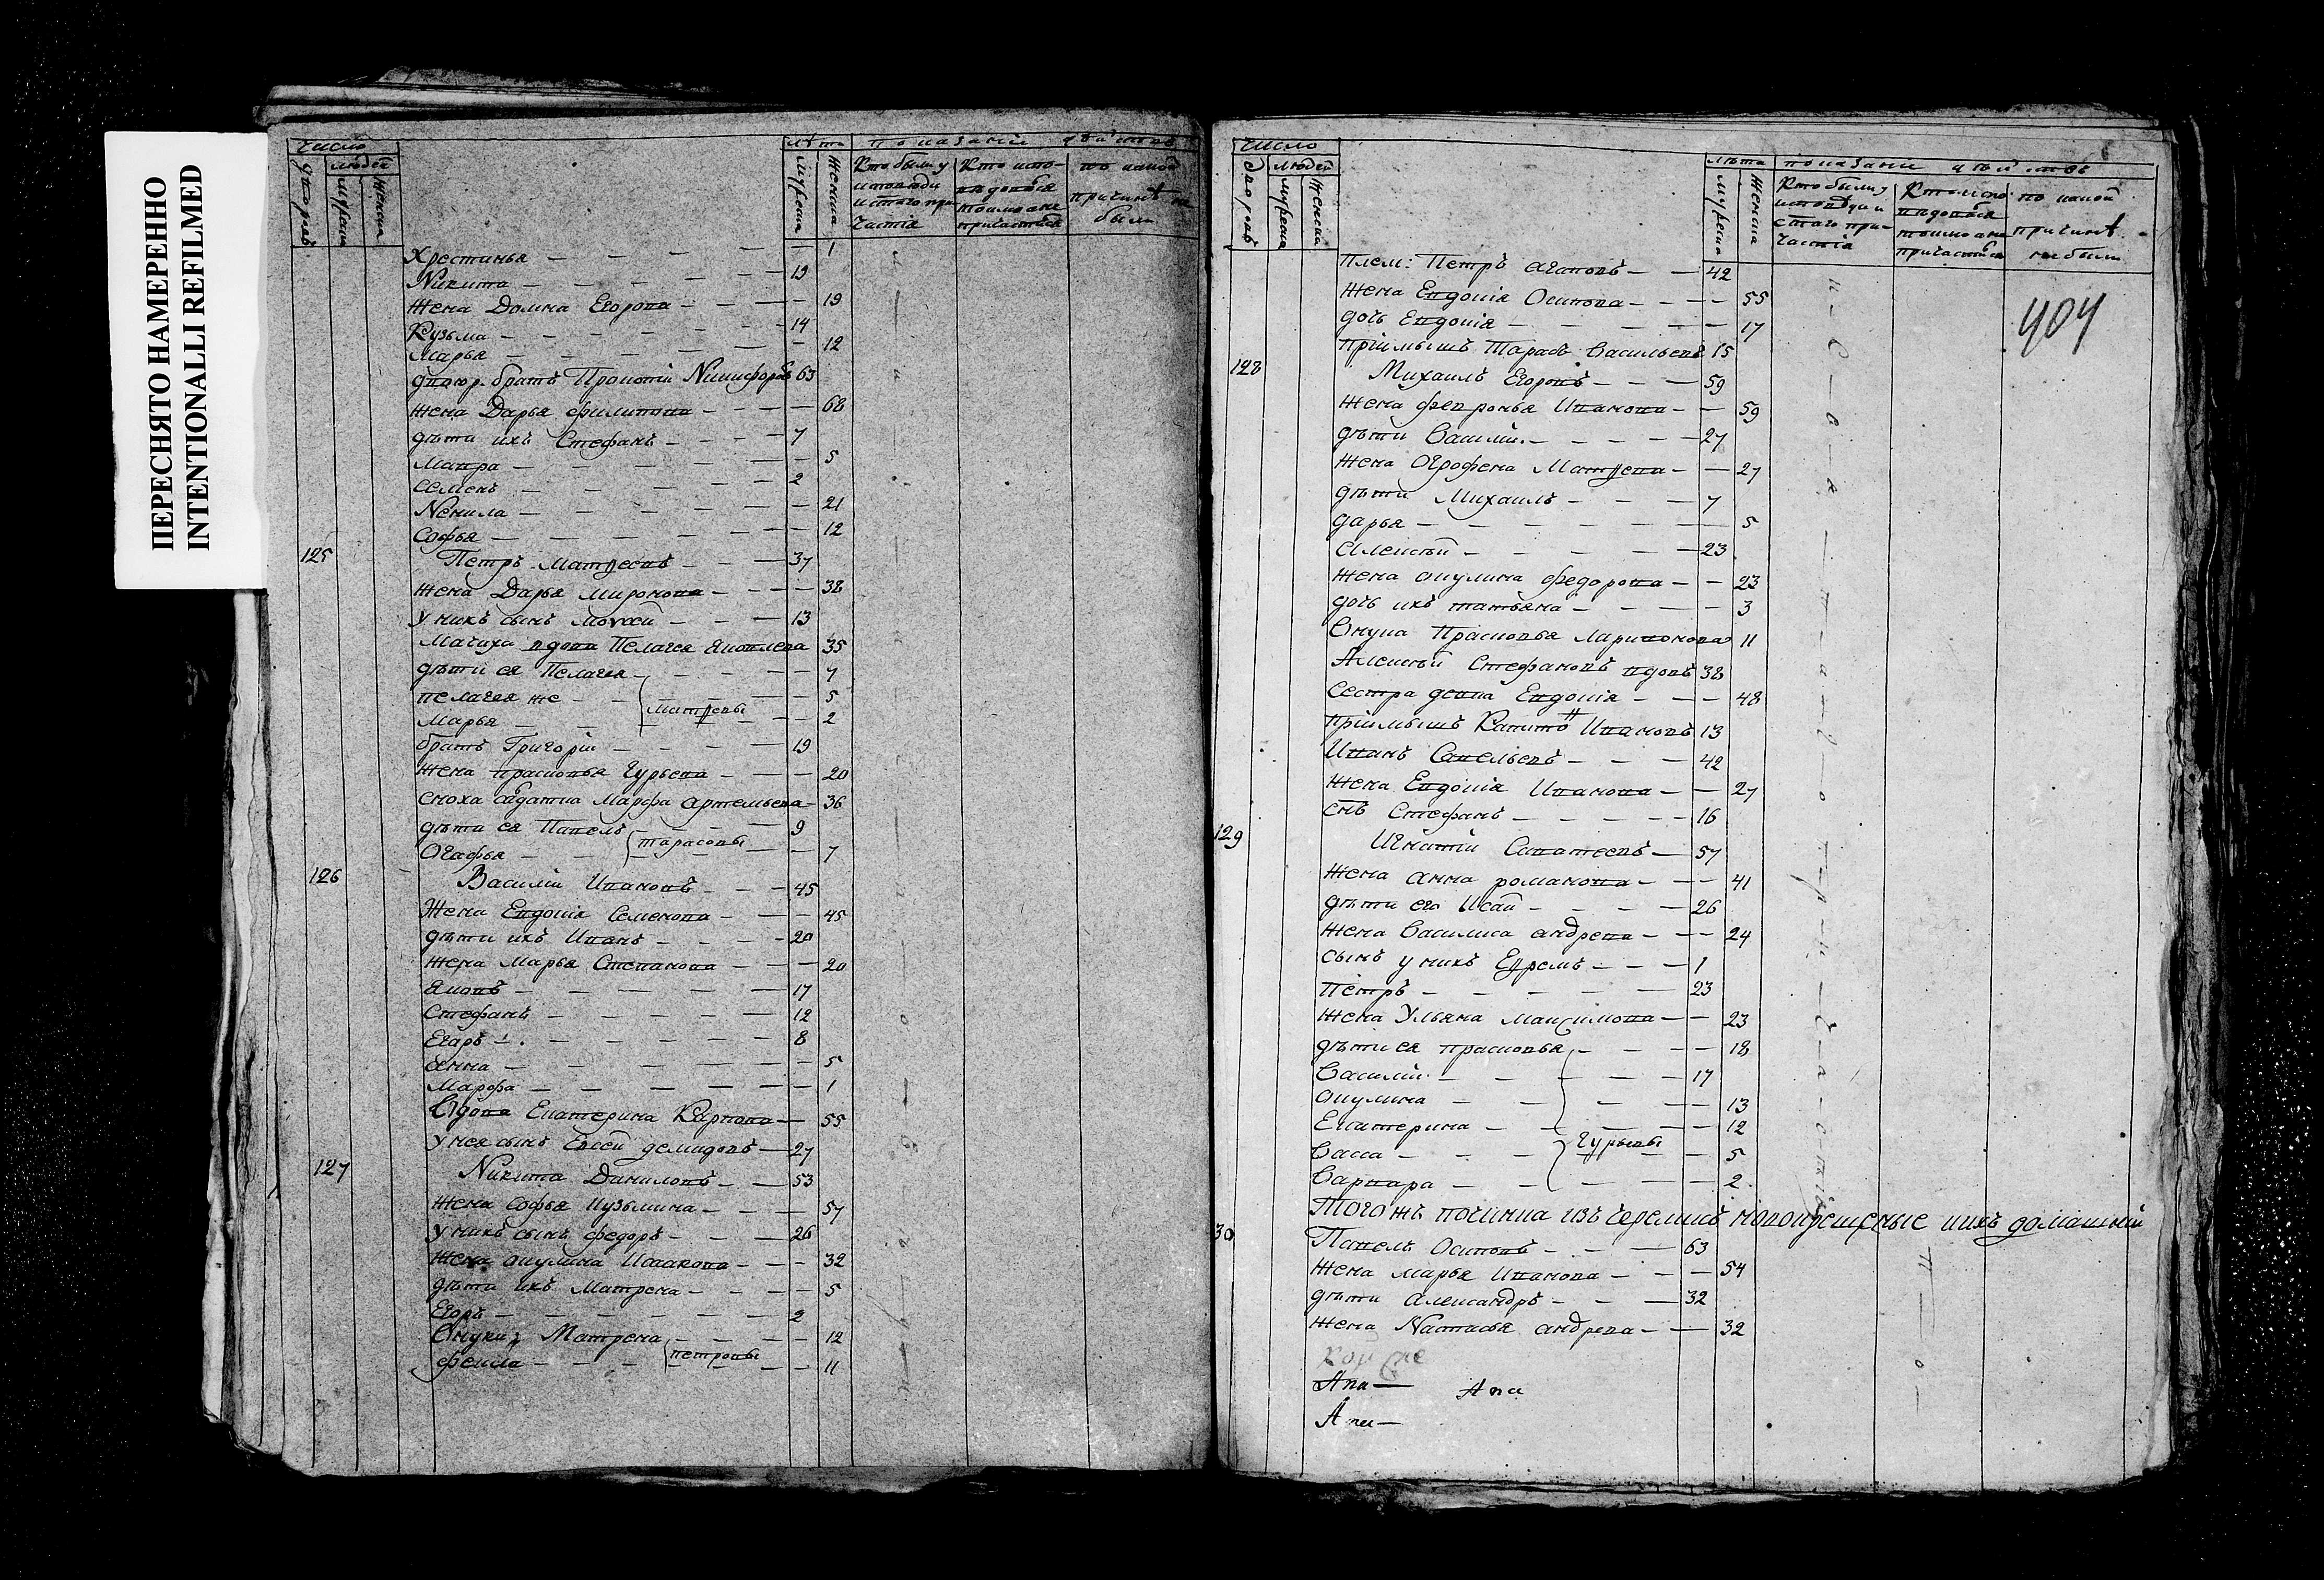 ПЕРЕСНЯТО НАМЕРЕННО
INTENTIONALLI REFILMED
Число
дворовъ
людей
мужеска
женска
лѣта
мужеска
женска
показанiи
Кто были у исповѣди и стаго при-частiя
Кто испо-вѣдовься токмо а не причастися
по какой причинѣ не были
Хрестинья — 1
Никита — 19
жена Домна Егорова — 19
Кузьма — 14
Марья — 12
двоюр. братъ Прокопiй Никифоровъ 63
жена Дарья Филипова — 68
дѣти ихъ Стефанъ — 7
Мавра — 5
Семенъ — 2
Ненила — 21
Софья — 12
125 Петръ Матвеевъ — 37
жена Дарья Миронова — 38
у нихъ сынъ — 13
Мачиха вдова Пелагея Яковлева 35
дѣти ея Пелагея — 7
пелагея же — 5
Матвевы
Марья — 2
братъ Григорiй — 19
жена Прасковья Гурьева — 20
сноха Марфа Артемьева — 36
дѣти ея Павелъ — 9
Тарасовы
Огафья — 7
126 Василiй Ивановъ — 45
Жена Евдокiя Семенова — 45
дѣти ихъ Иванъ — 20
жена Марья Степанова — 20
Яковъ — 17
Стефанъ — 12
Егаръ — 8
анна — 5
Марфа — 1
Вдова Екатерина Карпова — 55
у нея сынъ Евсей демидовъ — 27
127 Никита Даниловъ — 53
жена Софья Кузьмина — 57
у нихъ сынъ федоръ — 26
жена акулина Исакова — 32
дѣти ихъ Матрена — 5
Егоръ — 2
Внуки Матрена — 12
петровы
Фекла — 11
Число
дворовъ
людей
мужеска
женска
лѣта
мужеска
женска
показанiи
Кто были у исповѣди и стаго при-частiя
Кто испо-вѣдовься токмо а не причастися
по какой причинѣ не были
404
плем: Петръ агаповъ — 42
жена Евдокiя Осипова — 55
дочь Евдокiя — 17
прiимышъ Тарасъ Васильевъ 15
128 Михаилъ Егоровъ — 59
жена февронья Иванова — 59
дѣти Василiй — 27
жена Огрофена Матвева — 27
дѣти Михаилъ — 7
дарья — 5
алексѣй — 23
жена акулина федорова — 23
дочь ихъ татьяна — 3
Внука Прасковья Ларионова 11
Алексѣй Стефановъ вдовъ 38
Сестра девка Евдокiя — 48
прiимышъ Капитонъ Ивановъ 13
Иванъ Савельевъ — 42
жена Евдокiя Иванова — 27
снъ Стефанъ — 16
129 Игнатiй Саватеевъ — 57
жена анна романова — 41
дѣти его Исай — 26
жена Василиса андрева — 24
сынъ у нихъ Ефремъ — 1
Петръ — 23
жена Ульяна Максимова — 23
дѣти ея прасковья — 18
Василiй — 17
акулина — 13
Екатерина — 12
Гурьевы
Васса — 5
Варвара — 2
Того жъ починка изъ черемисъ новокрещеные и ихъ домашнiи
30 Павелъ Осиповъ — 63
жена марья Иванова — 54
дѣти александръ — 32
жена Настасья андрева — 32
Ана — Ана
Ане —